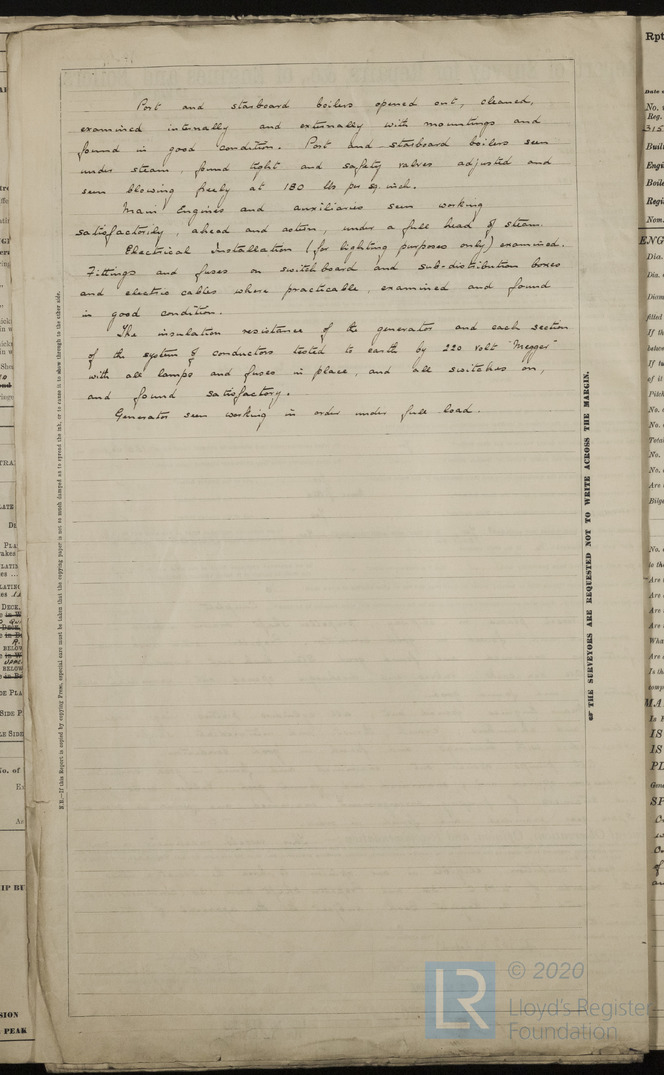 Port and starboard boilers opened out, cleaned,
examined internally and externally with mountings and
found in good condition. Port and starboard boilers seen
under steam, found tight and safety valves adjusted and
seen blowing freely at 180 lbs per sq. inch.
Main Engines and auxiliaries seen working
satisfactorily, ahead and astern, under a full head of steam.
Electrical Installation (for lighting purposes only) examined.
Fittings and fuses on switchboard and sub-distribution boxes
and electric cables where practicable, examined and found
in good condition.
The insulation resistance of the generator and each section
of the system of conductors tested to earth by 220 volt "Megger"
with all lamps and fuses in place, and all switches on,
and found satisfactory.
Generator seen working in order under full load.
N.B.—If this Report is copied by copying Press, especial care must be taken that the copying paper is not so much damped as to spread the ink, or to cause it to show through to the other side.
THE SURVEYORS ARE REQUESTED NOT TO WRITE ACROSS THE MARGIN.
© 2020
LR
Lloyd's Register
Foundation